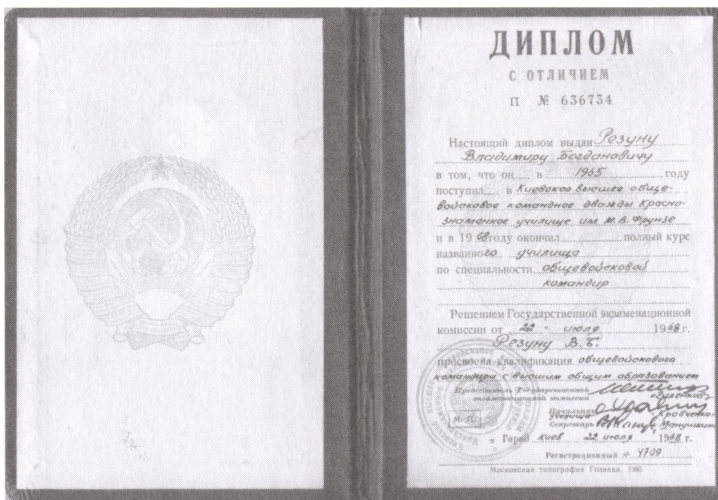 ДИПЛОМ
С ОТЛИЧИЕМ
П № 636734
Настоящий диплом выдан Резуну
Владимиру Богдановичу
в том, что он в 1965 году
поступил в Киевское высшее обще-
войсковое командное дважды Красно-
знаменное училище им. М.В. Фрунзе
и в 1968 году окончил полный курс
названного училища
по специальности общевойсковой
командир
Решением Государственной экзаменационной
комиссии от 22 - июля 1968 г.
Резуну В.Б.
присвоена квалификация общевойскового
командира с высшим общим образованием
Председатель Государственной
экзаменационной комиссии
Начальник
училища Кравченко
Секретарь
Город Киев 22 июля 1968 г.
Регистрационный № 4709
Московская типография Гознака. 1960.